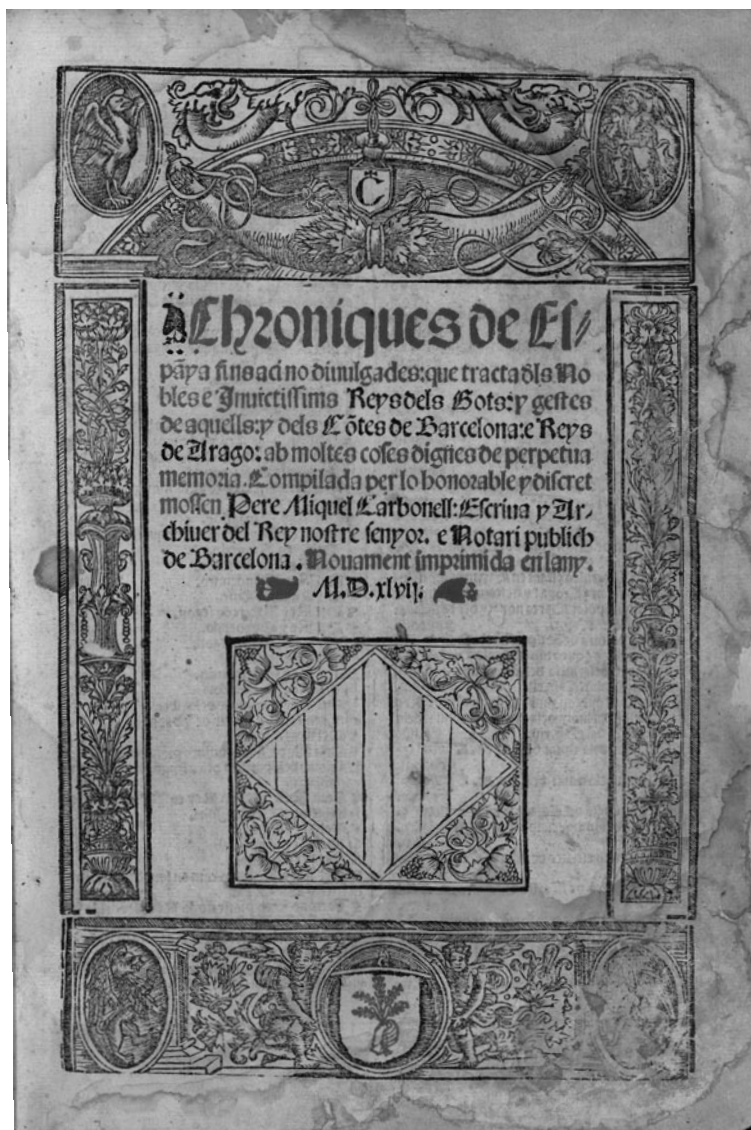 C
Chroniques de Eſ⸗
pāya fins aci no diuulgades: que tracta dls No
bles e Inuictiſſims Reys dels Gots: y geſtes
de aquells: y dels Cōtes de Barcelona: e Reys
de Arago: ab moltes coſes dignes de perpetua
memoria. Compilada per lo honorable y diſcret
moſſen Pere Miquel Carbonell: Eſcriua y Ar-
chiuer del Rey noſtre ſenyor. e Notari publich
de Barcelona. Nouament imprimida en lany.
M.D.xlvij.